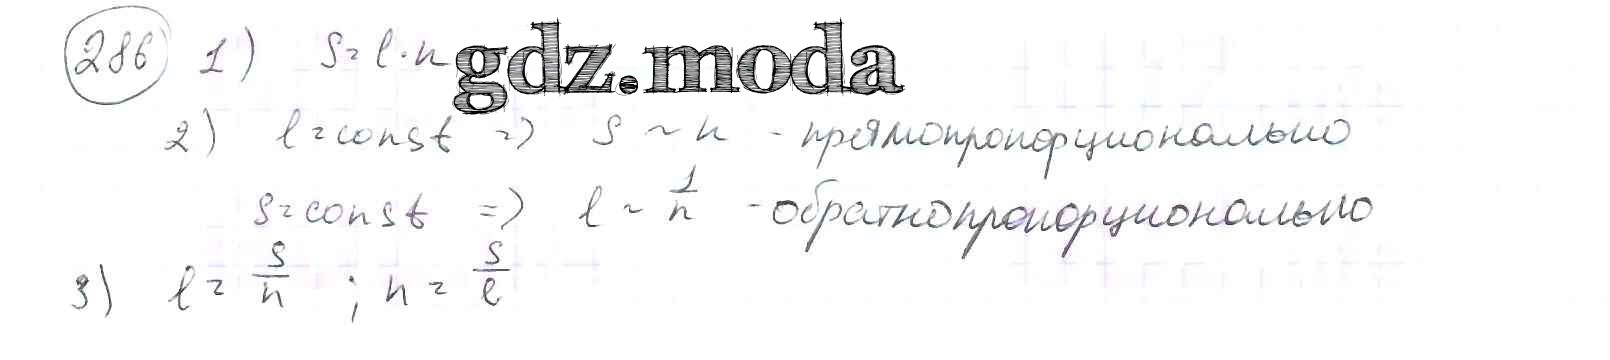 286 1) S = l · n gdz.moda
2) l = const => S ~ n - прямопропорционально
S = const => l ~ 1/n - обратнопропорционально
3) l = S/n ; n = S/l